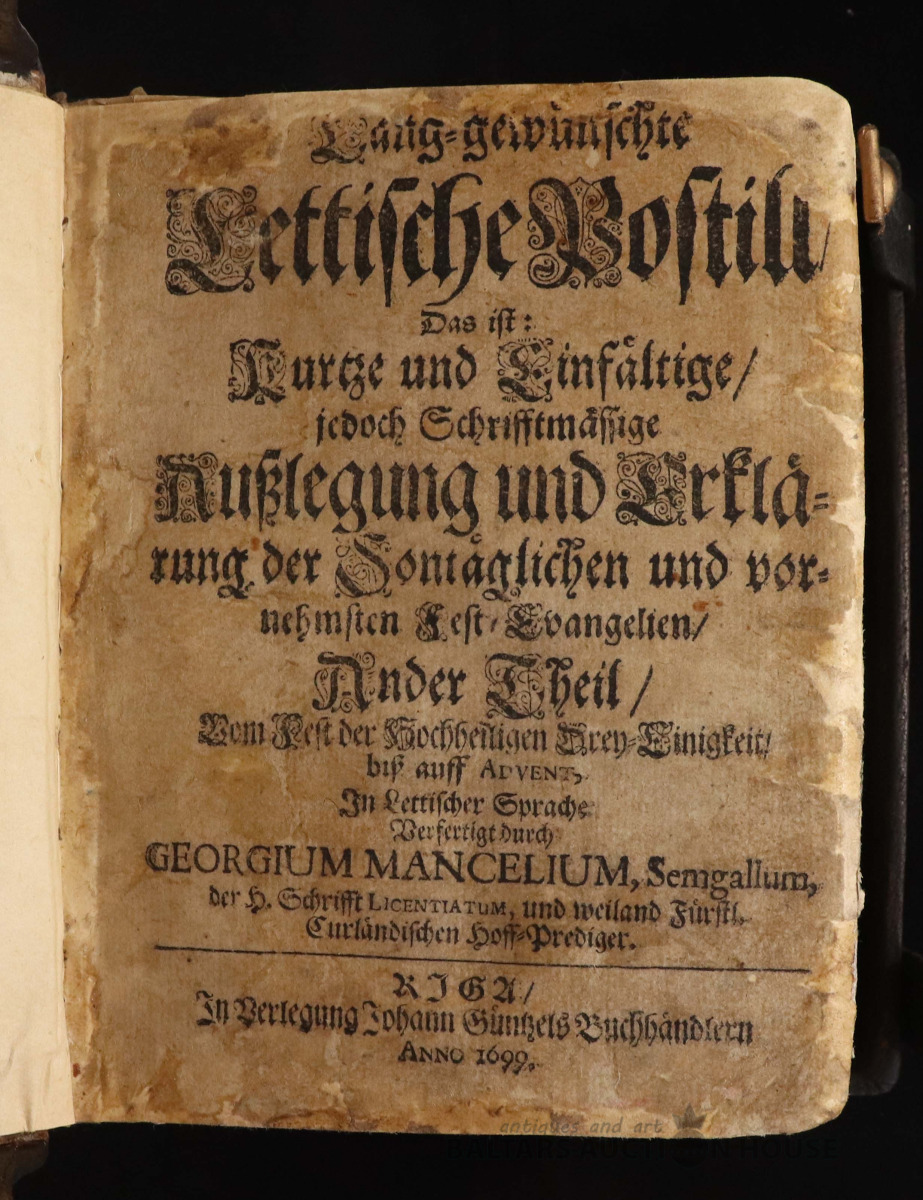 Lang-gewünschte
Lettische Postill/
Das ist:
Kurtze und Einfältige/
jedoch Schrifftmässige
Außlegung und Erklä-
rung der Sontäglichen und vor-
nehmsten Fest-Evangelien/
Ander Theil/
Vom Fest der Hochheiligen Drey-Einigkeit/
biß auff ADVENT,
In Lettischer Sprache
Verfertigt durch
GEORGIUM MANCELIUM, Semgallum,
der H. Schrifft LICENTIATUM, und weiland Fürstl.
Curländischen Hoff-Prediger.
RIGA/
In Verlegung Johann Güntzels Buchhändlern
ANNO 1699.
antiques and art
BALTARS AUCTION HOUSE